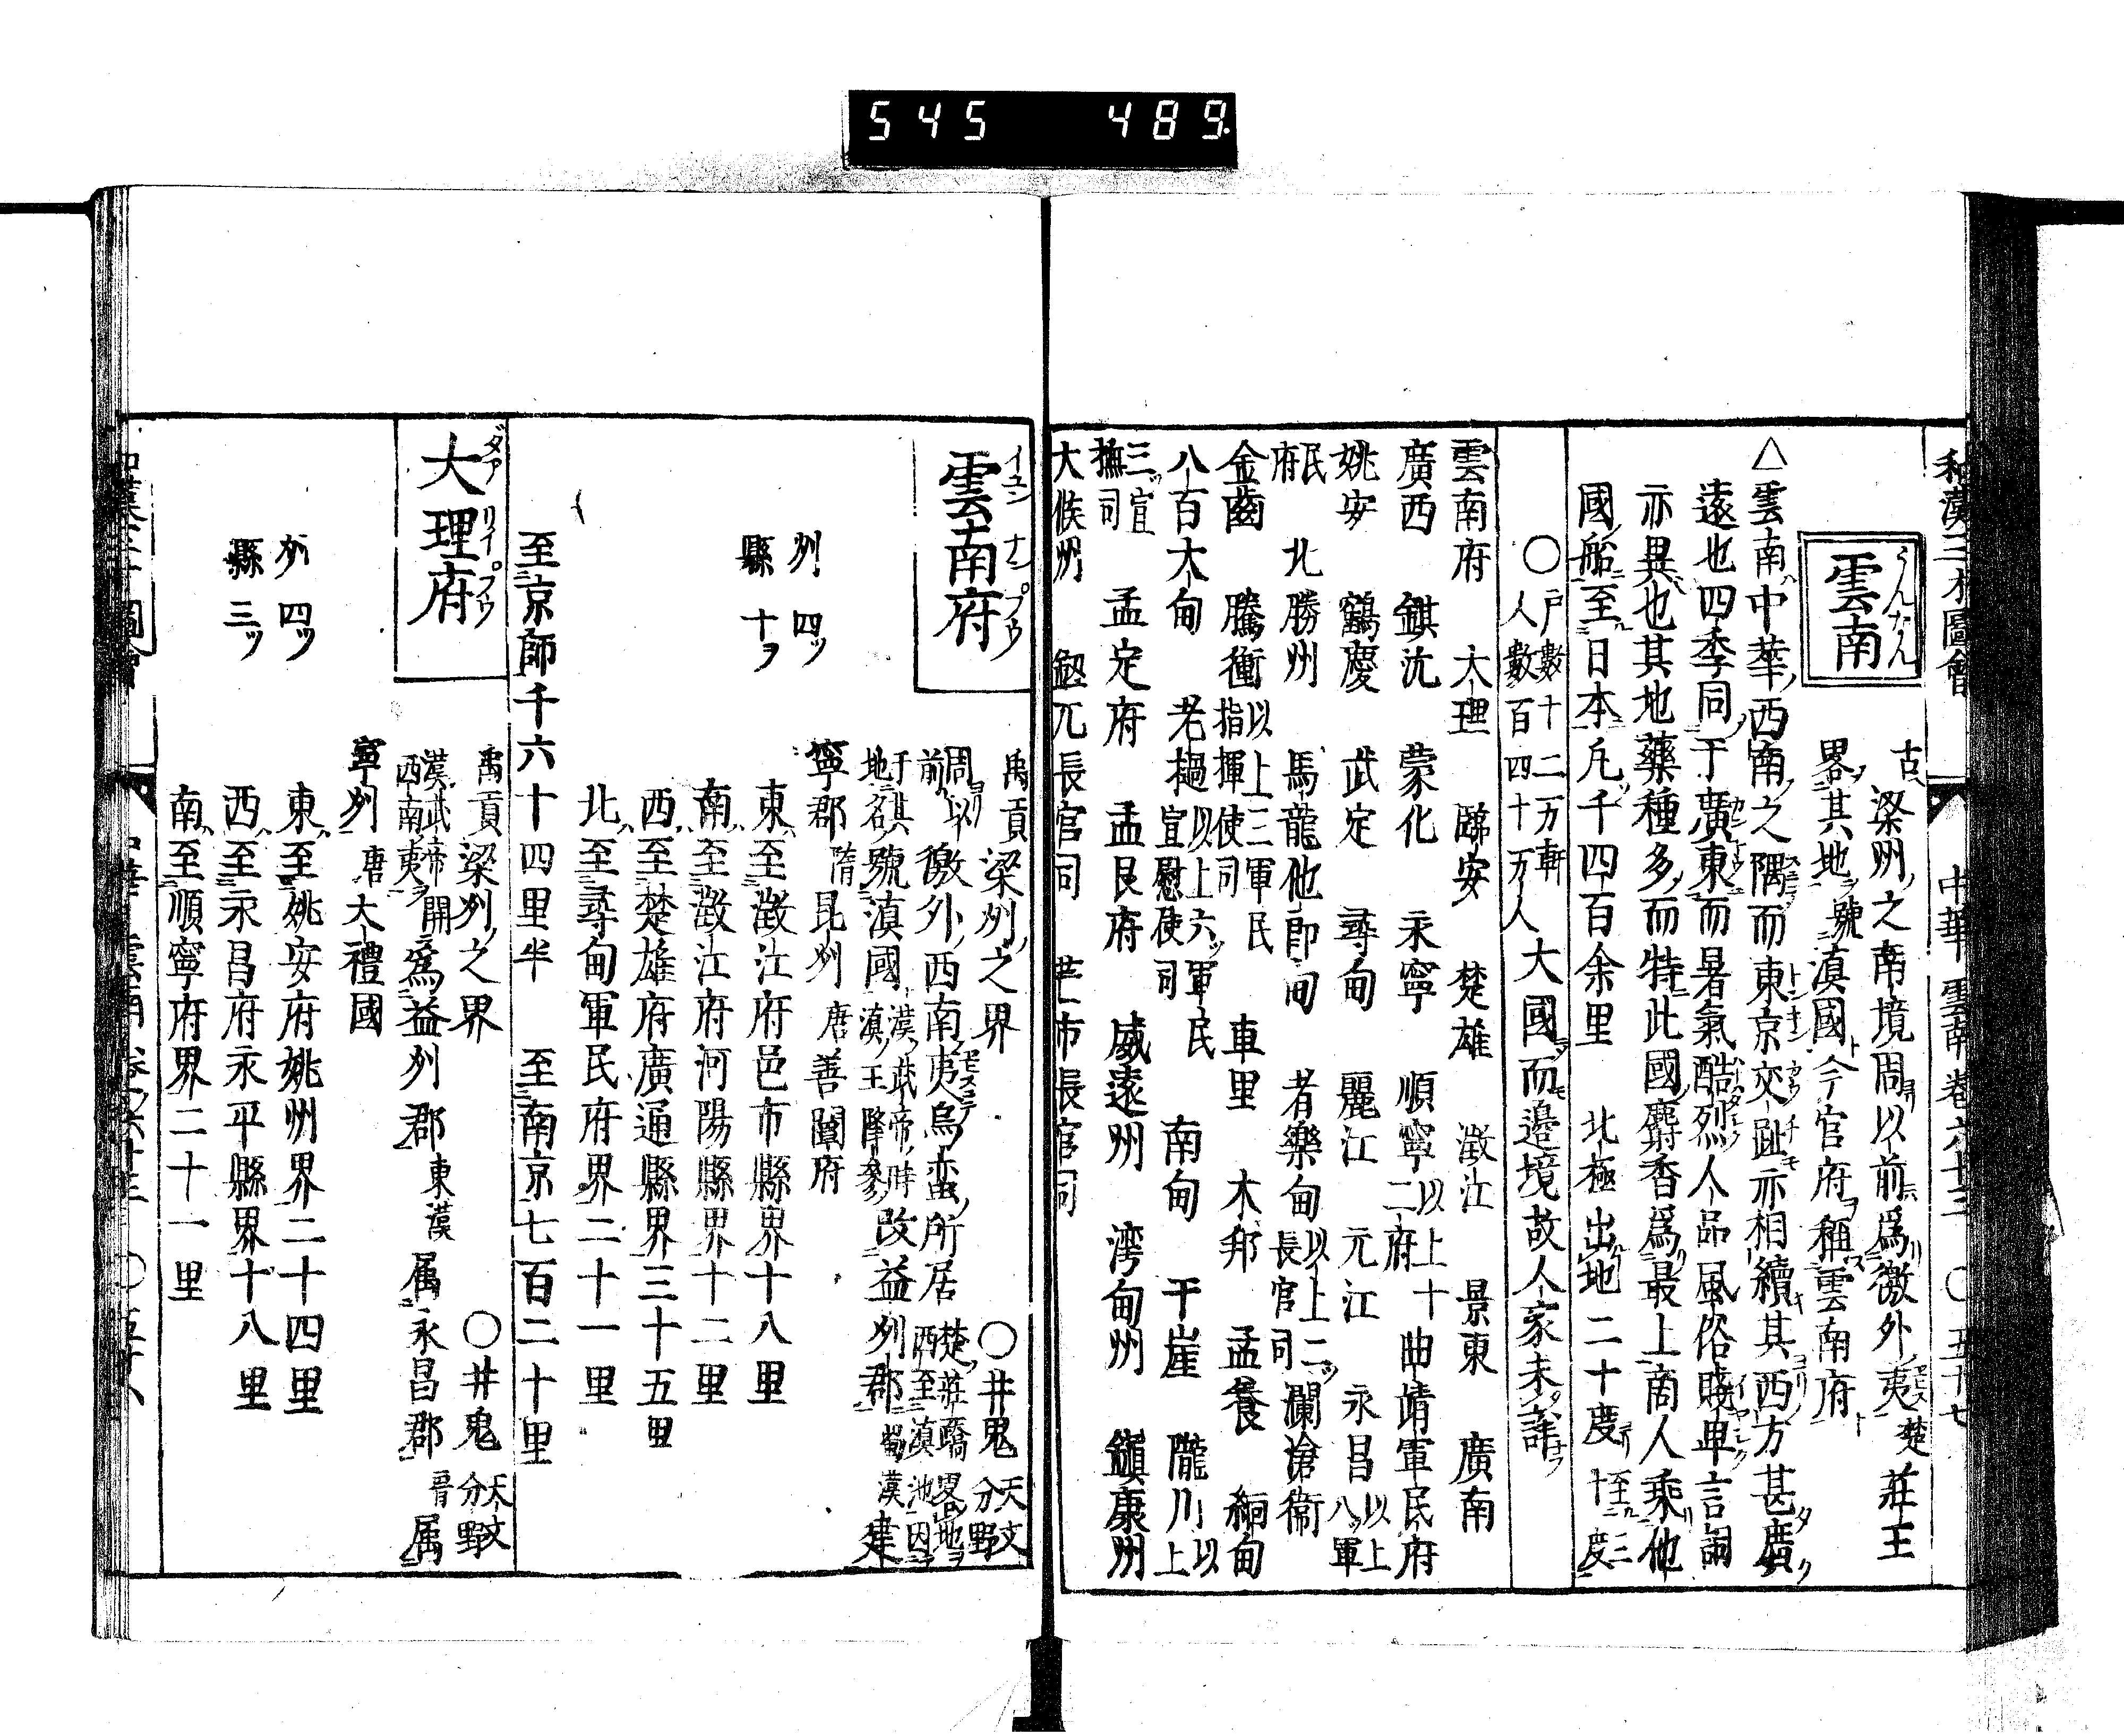 545 489
和漢三才圖會 中華 雲南 卷六十三 ○五十七
雲南 うんなん
古ハ梁州ノ之南境周ヨリ以前ハ爲徼外ノ夷楚莊王
畧其地ヲ號滇國ト今官府ヲ稱ス雲南府ト
△雲南ハ中華ノ西南ノ之隅而東京交趾モ亦相續キ其西方甚廣
遠也四季同于廣東而暑氣酷烈人品風俗賤卑言詞
亦異也其地藥種多而特此國麝香爲最上商人乘他
國ノ船至日本凡千四百余里 北極出地二十度至二十二度
○戸數十二万軒
人數百四十万人 大國而邊境故人家未詳
雲南府 大理 臨安 楚雄 澂江 景東 廣南
廣西 鎮沅 蒙化 永寧 順寧以上十二府 曲靖軍民府
姚安 鶴慶 武定 尋甸 麗江 元江 永昌以上八ツ軍
民府 北勝州 馬龍他郎甸 者樂甸以上二ツ長官司 瀾滄衞
金齒 騰衝以上三軍民指揮使司 車里 木邦 孟養 緬甸
八百大甸 老撾以上六ツ軍民宣慰使司 南甸 干崖 隴川以上
三ツ宣撫司 孟定府 孟艮府 威遠州 湾甸州 鎮康州
大候州 鈕兀長官司 芒市長官司
雲南府 イユン ナン プウ
禹貢梁州ノ之界 ○井鬼 天文分野
周ヨリ以前ハ徼外ノ西南夷烏蛮ノ所居 楚ノ莊蹻畧地ヲ西至滇池因
于其地名號滇國 漢ノ武帝ノ時滇ノ王降參 改益州郡 蜀漢 建
寧郡 隋 昆州 唐 善闡府
州 四ツ
縣 十ヲ
東ハ至澂江府邑市縣界十八里
南ハ至澂江府河陽縣界十二里
西ハ至楚雄府廣通縣界三十五里
北ハ至尋甸軍民府界二十一里
至京師千六十四里半 至南京七百二十里
大理府 ダアリイプウ
禹貢梁州ノ之界 ○井鬼 天文分野
漢ノ武帝開西南夷ヲ 爲益州郡 東漢 属永昌郡 晉 属
寧州 唐 大禮國
州 四ツ
縣 三ツ
東ハ至姚安府姚州界二十四里
西ハ至永昌府永平縣界十八里
南ハ至順寧府界二十一里